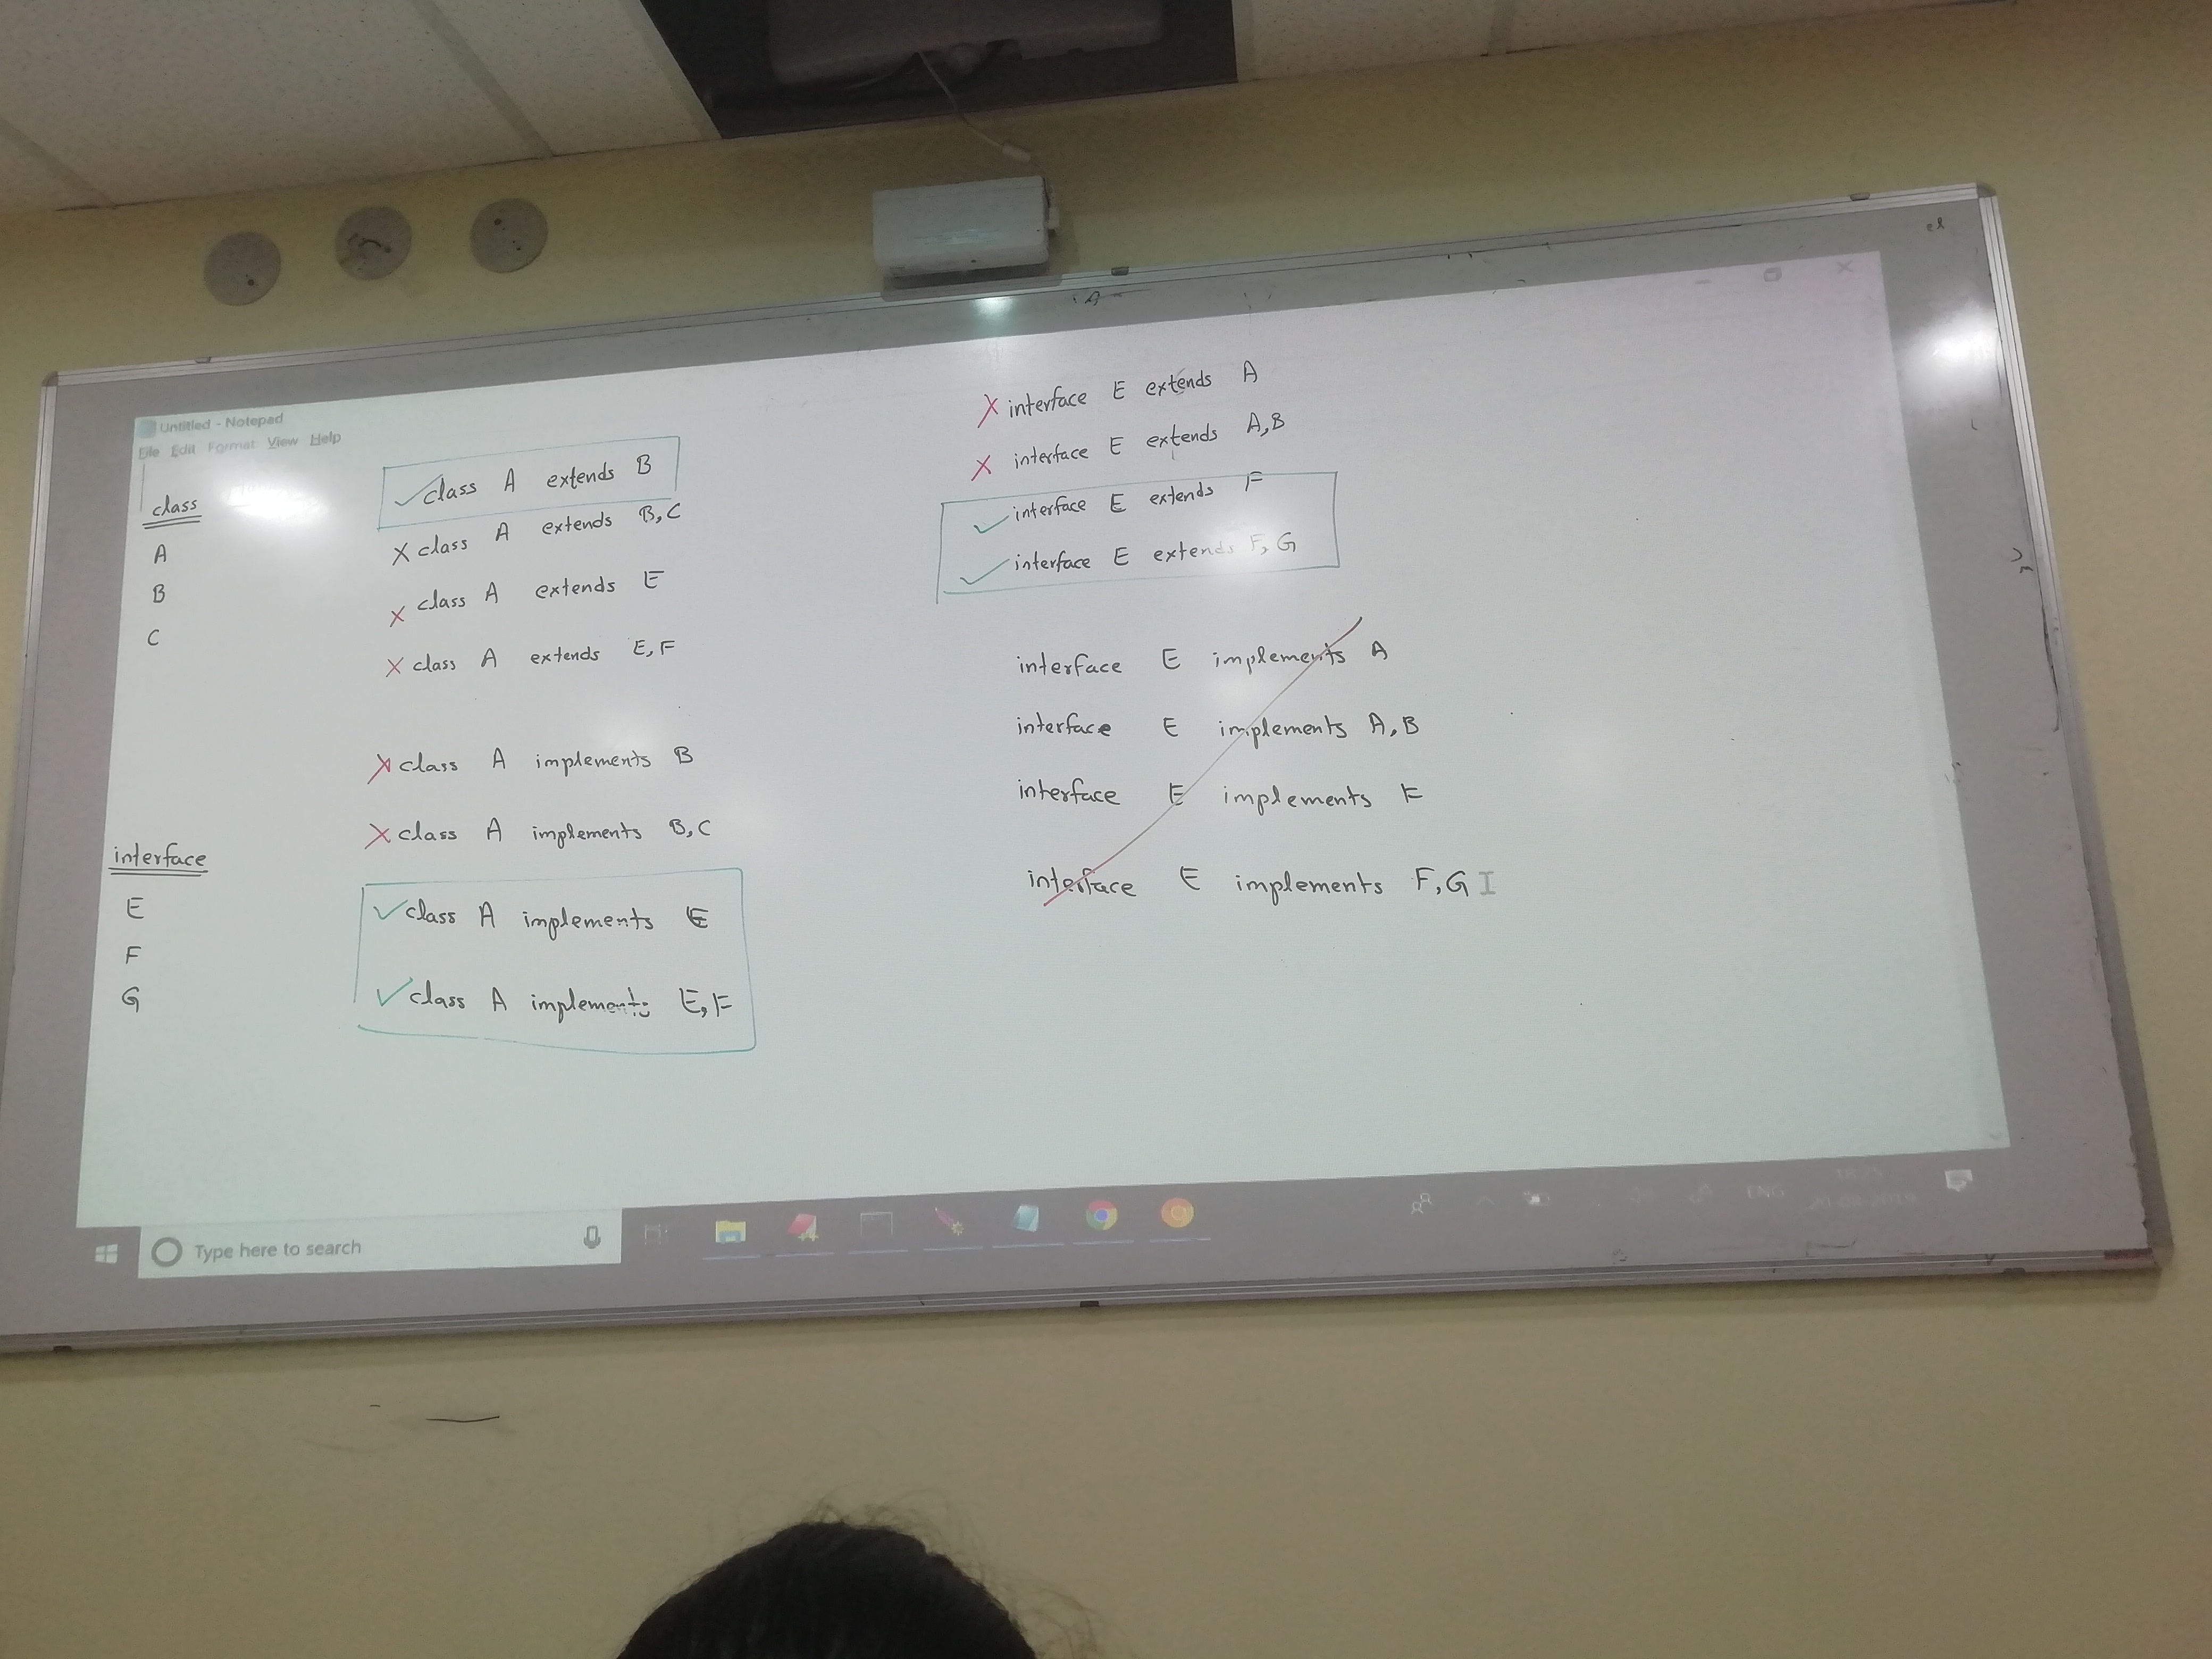 Untitled - Notepad
File Edit Format View Help
class
A
B
C
interface
E
F
G
✓ class A extends B
X class A extends B, C
X class A extends E
X class A extends E, F
X class A implements B
X class A implements B, C
✓ class A implements E
✓ class A implements E, F
X interface E extends A
X interface E extends A, B
✓ interface E extends F
✓ interface E extends F, G
interface E implements A
interface E implements A, B
interface E implements F
interface E implements F, G
Type here to search
ENG